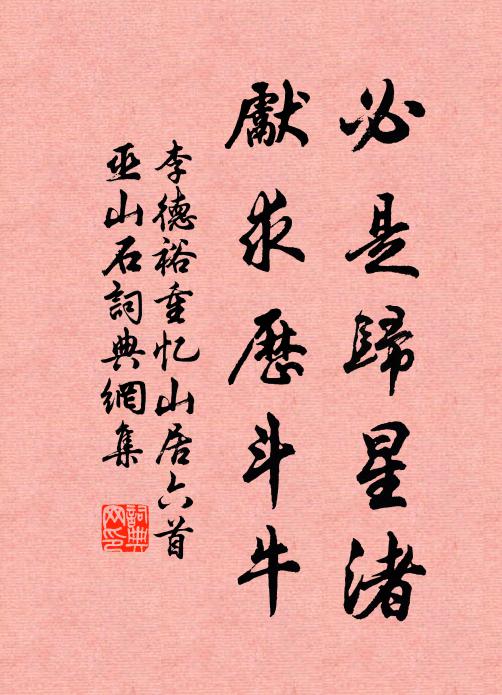 必是歸星渚
獻求歷斗牛
李德裕重忆山居六首
巫山石詞典網集
詞典网印